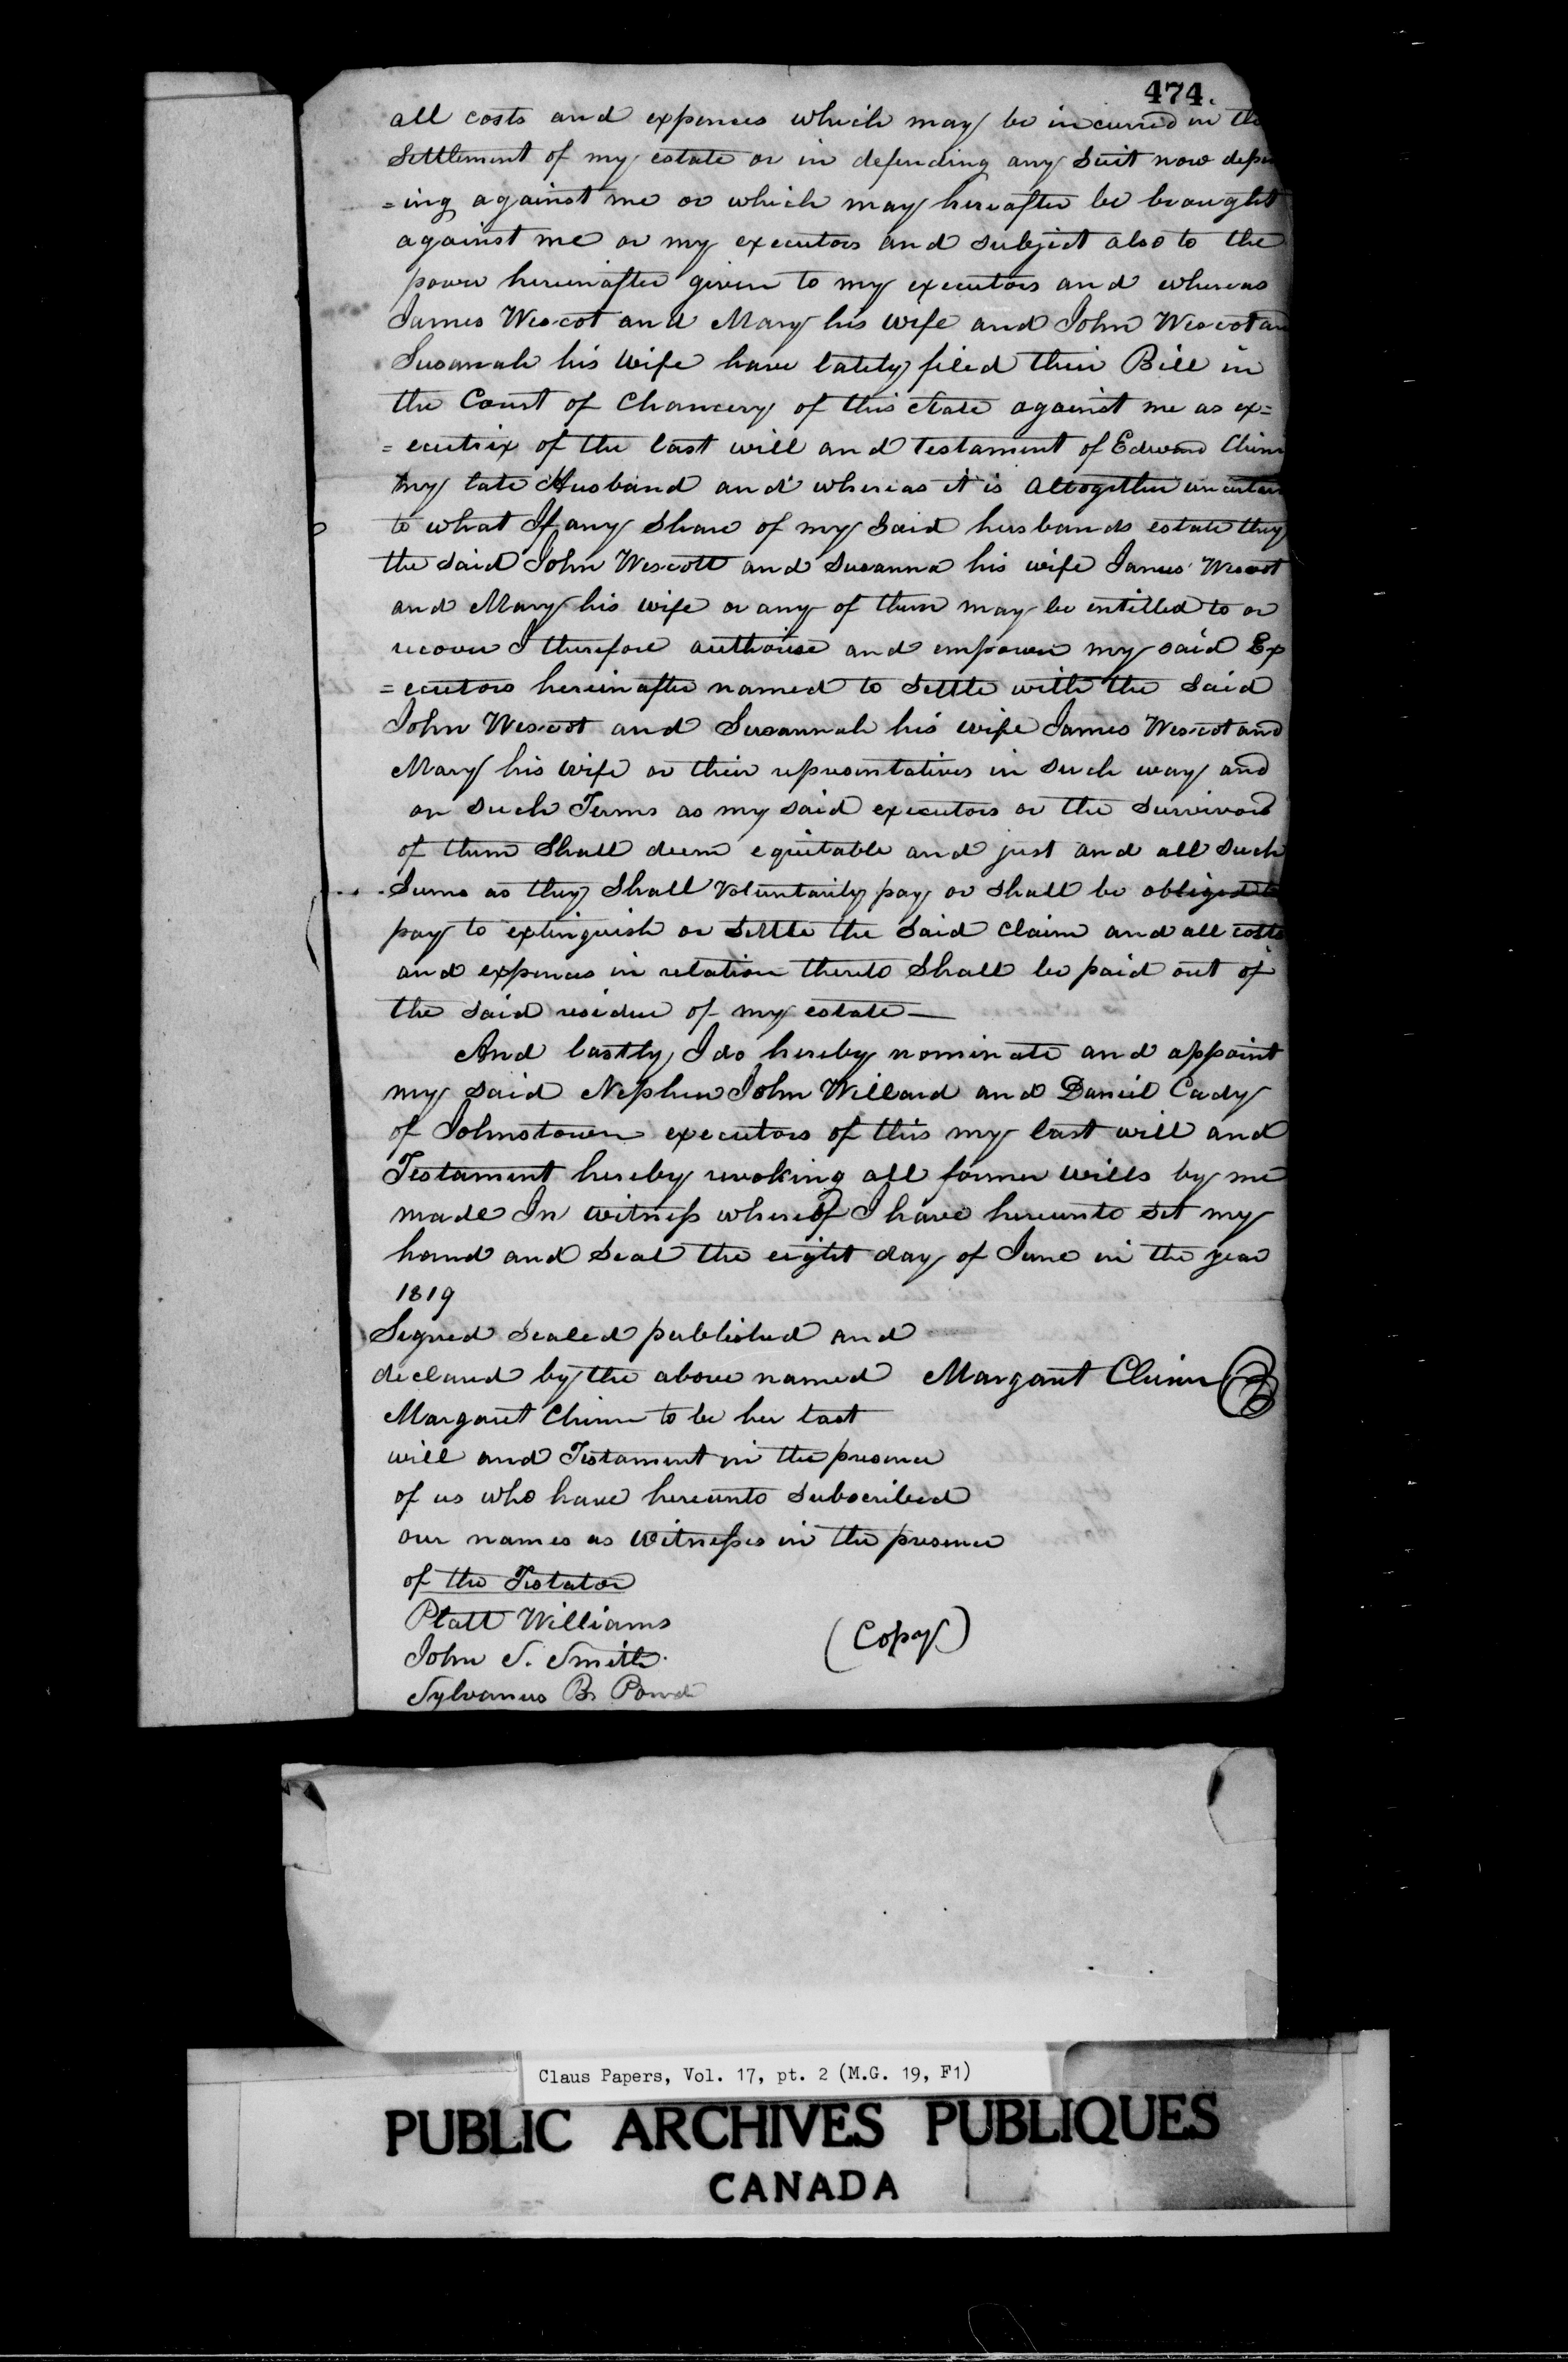 474.
all costs and expences which may be incurred in the
Settlement of my estate or in defending any Suit now depen
=ing against me or which may hereafter be brought
against me or my executors and subject also to the
power hereinafter given to my executors and whereas
James Wescot and Mary his wife and John Wescot an
Susannah his Wife have lately filed their Bill in
the Court of Chancery of this State against me as ex=
=ecutrix of the last will and Testament of Edward Chinn
my late Husband and whereas it is altogether uncertain
to what If any Share of my Said husbands estate they
the said John Wescott and Susanna his wife James Wescot
and Mary his wife or any of them may be intitled to or
recover I therefore authorise and empower my said Ex
=ecutors hereinafter named to Settle with the Said
John Wescot and Susannah his wife James Wescot and
Mary his wife or their representatives in such way and
on such Terms as my said executors or the Survivors
of them Shall deem equitable and just and all such
Sums as they Shall Voluntarily pay or shall be obliged to
pay to extinguish or Settle the Said Claim and all costs
and expences in relation thereto Shall be paid out of
the said residue of my estate—
And lastly I do hereby nominate and appoint
my said Nephew John Willard and Daniel Cady
of Johnstown executors of this my last will and
Testament hereby revoking all former wills by me
made In witness whereof I have hereunto set my
hand and Seal the eight day of June in the year
1819
Signed Sealed published and
declared by the above named Margaret Chinn
Margaret Chinn to be her last
will and Testament in the presence
of us who have hereunto Subscribed
our names as Witnesses in the presence
of the Testator
Platt Williams
John S. Smith.
Sylvanus B.
(Copy)
Claus Papers, Vol. 17, pt. 2 (M.G. 19, F1)
PUBLIC ARCHIVES PUBLIQUES
CANADA